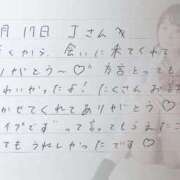 月17日 Jさんへ
くから、会いに来てくれて
りがとう〜♡ 方言とっても
わいかったよ! たくさんお
かせてくれてありがとう♡
イプです って言ってもらえ
てもうれしかったです♡